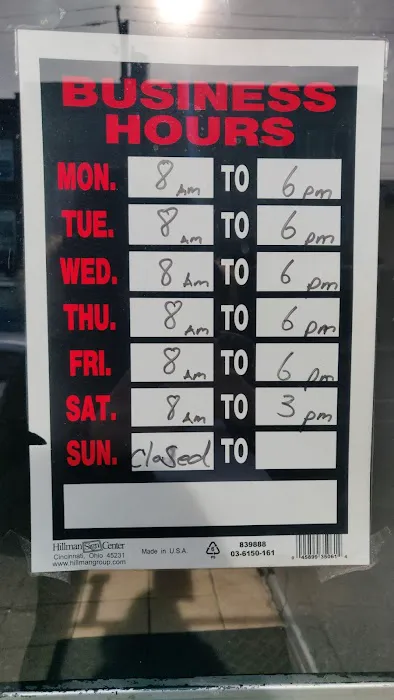 BUSINESS
HOURS
MON. 8 Am TO 6 pm
TUE. 8 Am TO 6 pm
WED. 8 Am TO 6 pm
THU. 8 Am TO 6 pm
FRI. 8 Am TO 6 pm
SAT. 8 Am TO 3 pm
SUN. Closed TO
Hillman Sign Center
Cincinnati, Ohio 45231
www.hillmangroup.com
Made in U.S.A.
839888
03-6150-161